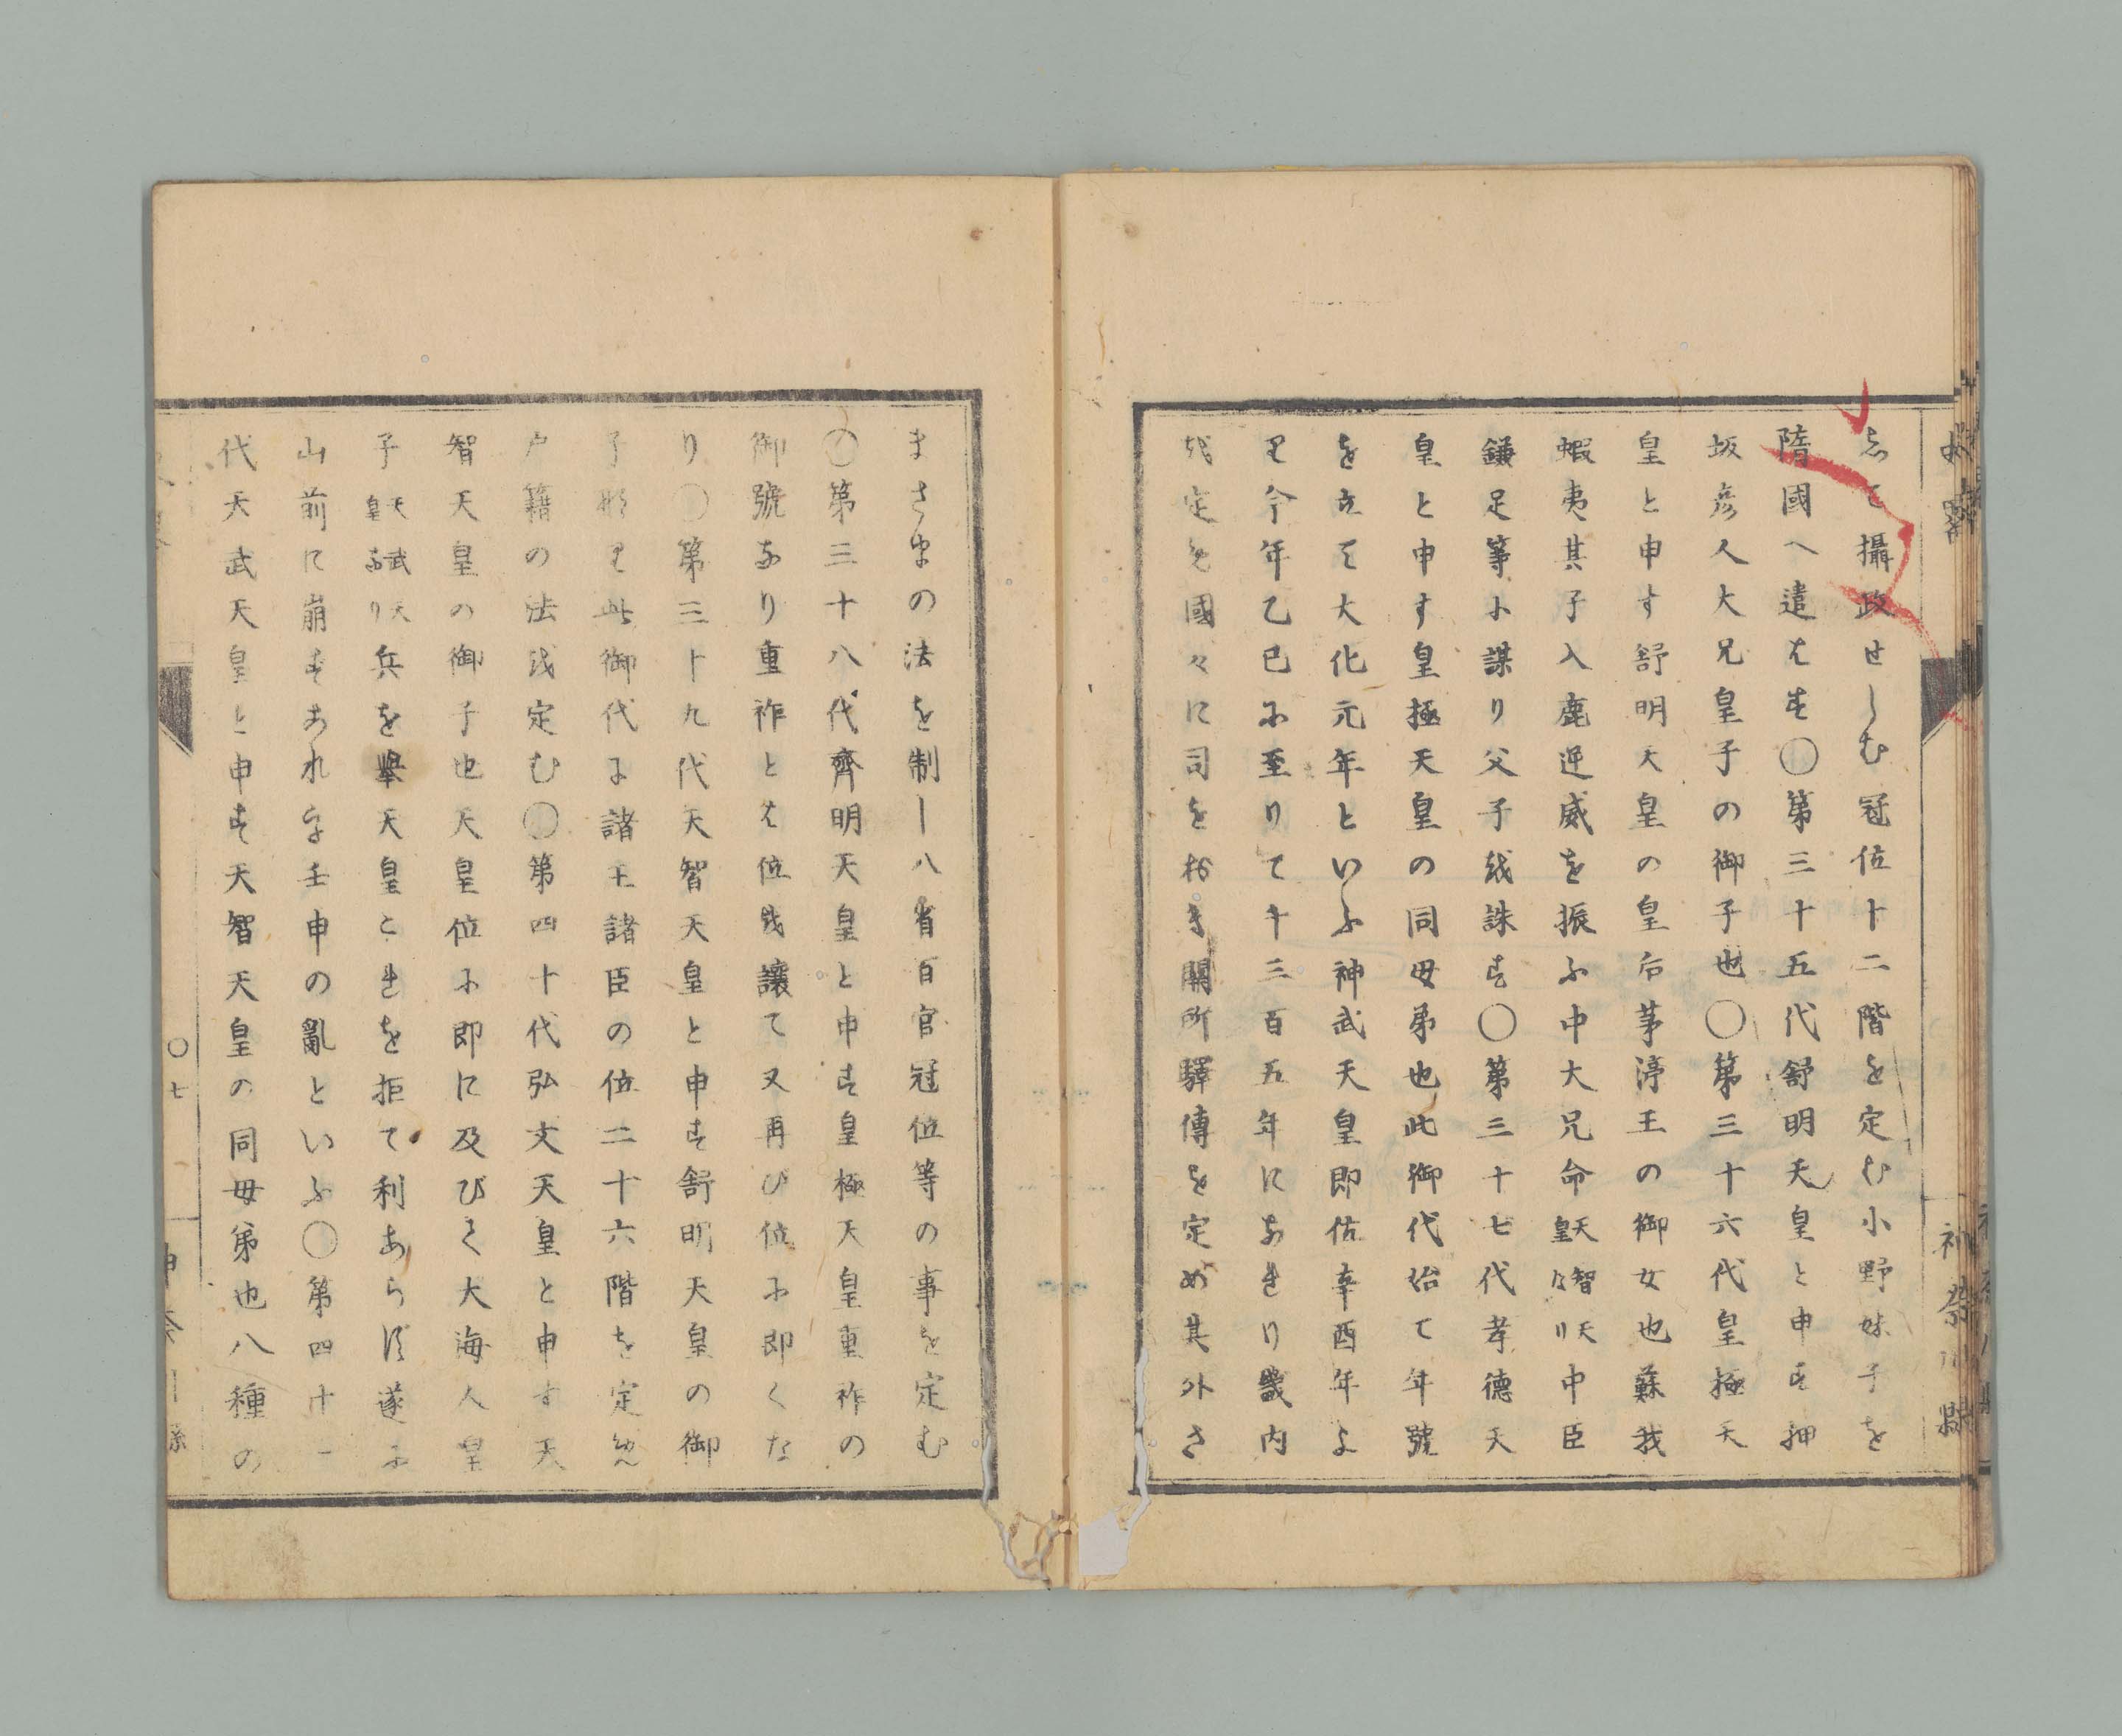 志て攝政せしむ冠位十二階を定む小野妹子を
隋國へ遣はす〇第三十五代舒明天皇と申す押
坂彦人大兄皇子の御子也〇第三十六代皇極天
皇と申す舒明天皇の皇后茅渟王の御女也蘇我
蝦夷其子入鹿逆威を振ふ中大兄命天智天皇なり中臣
鎌足等小謀り父子越誅す〇第三十七代孝德天
皇と申す皇極天皇の同母弟也此御代始て年號
を立て大化元年といふ神武天皇即位辛酉年よ
り今年乙巳小至りて千三百五年にあたり畿内
越定め國々に司をおき關所驛傳を定め其外さ
まさまの法を制し八省百官冠位等の事を定む
〇第三十八代齊明天皇と申す皇極天皇重祚の
御號なり重祚とは位越讓て又再び位小即くな
り〇第三十九代天智天皇と申す舒明天皇の御
子那り此御代に諸王諸臣の位二十六階を定め
戸籍の法越定む〇第四十代弘文天皇と申す天
智天皇の御子也天皇位小即に及びて大海人皇
子天武天皇なり兵を擧天皇これを拒て利あらず遂小
山前に崩ずあれ乎壬申の亂といふ〇第四十一
代天武天皇と申す天智天皇の同母弟也八種の
〇七
神奈川縣